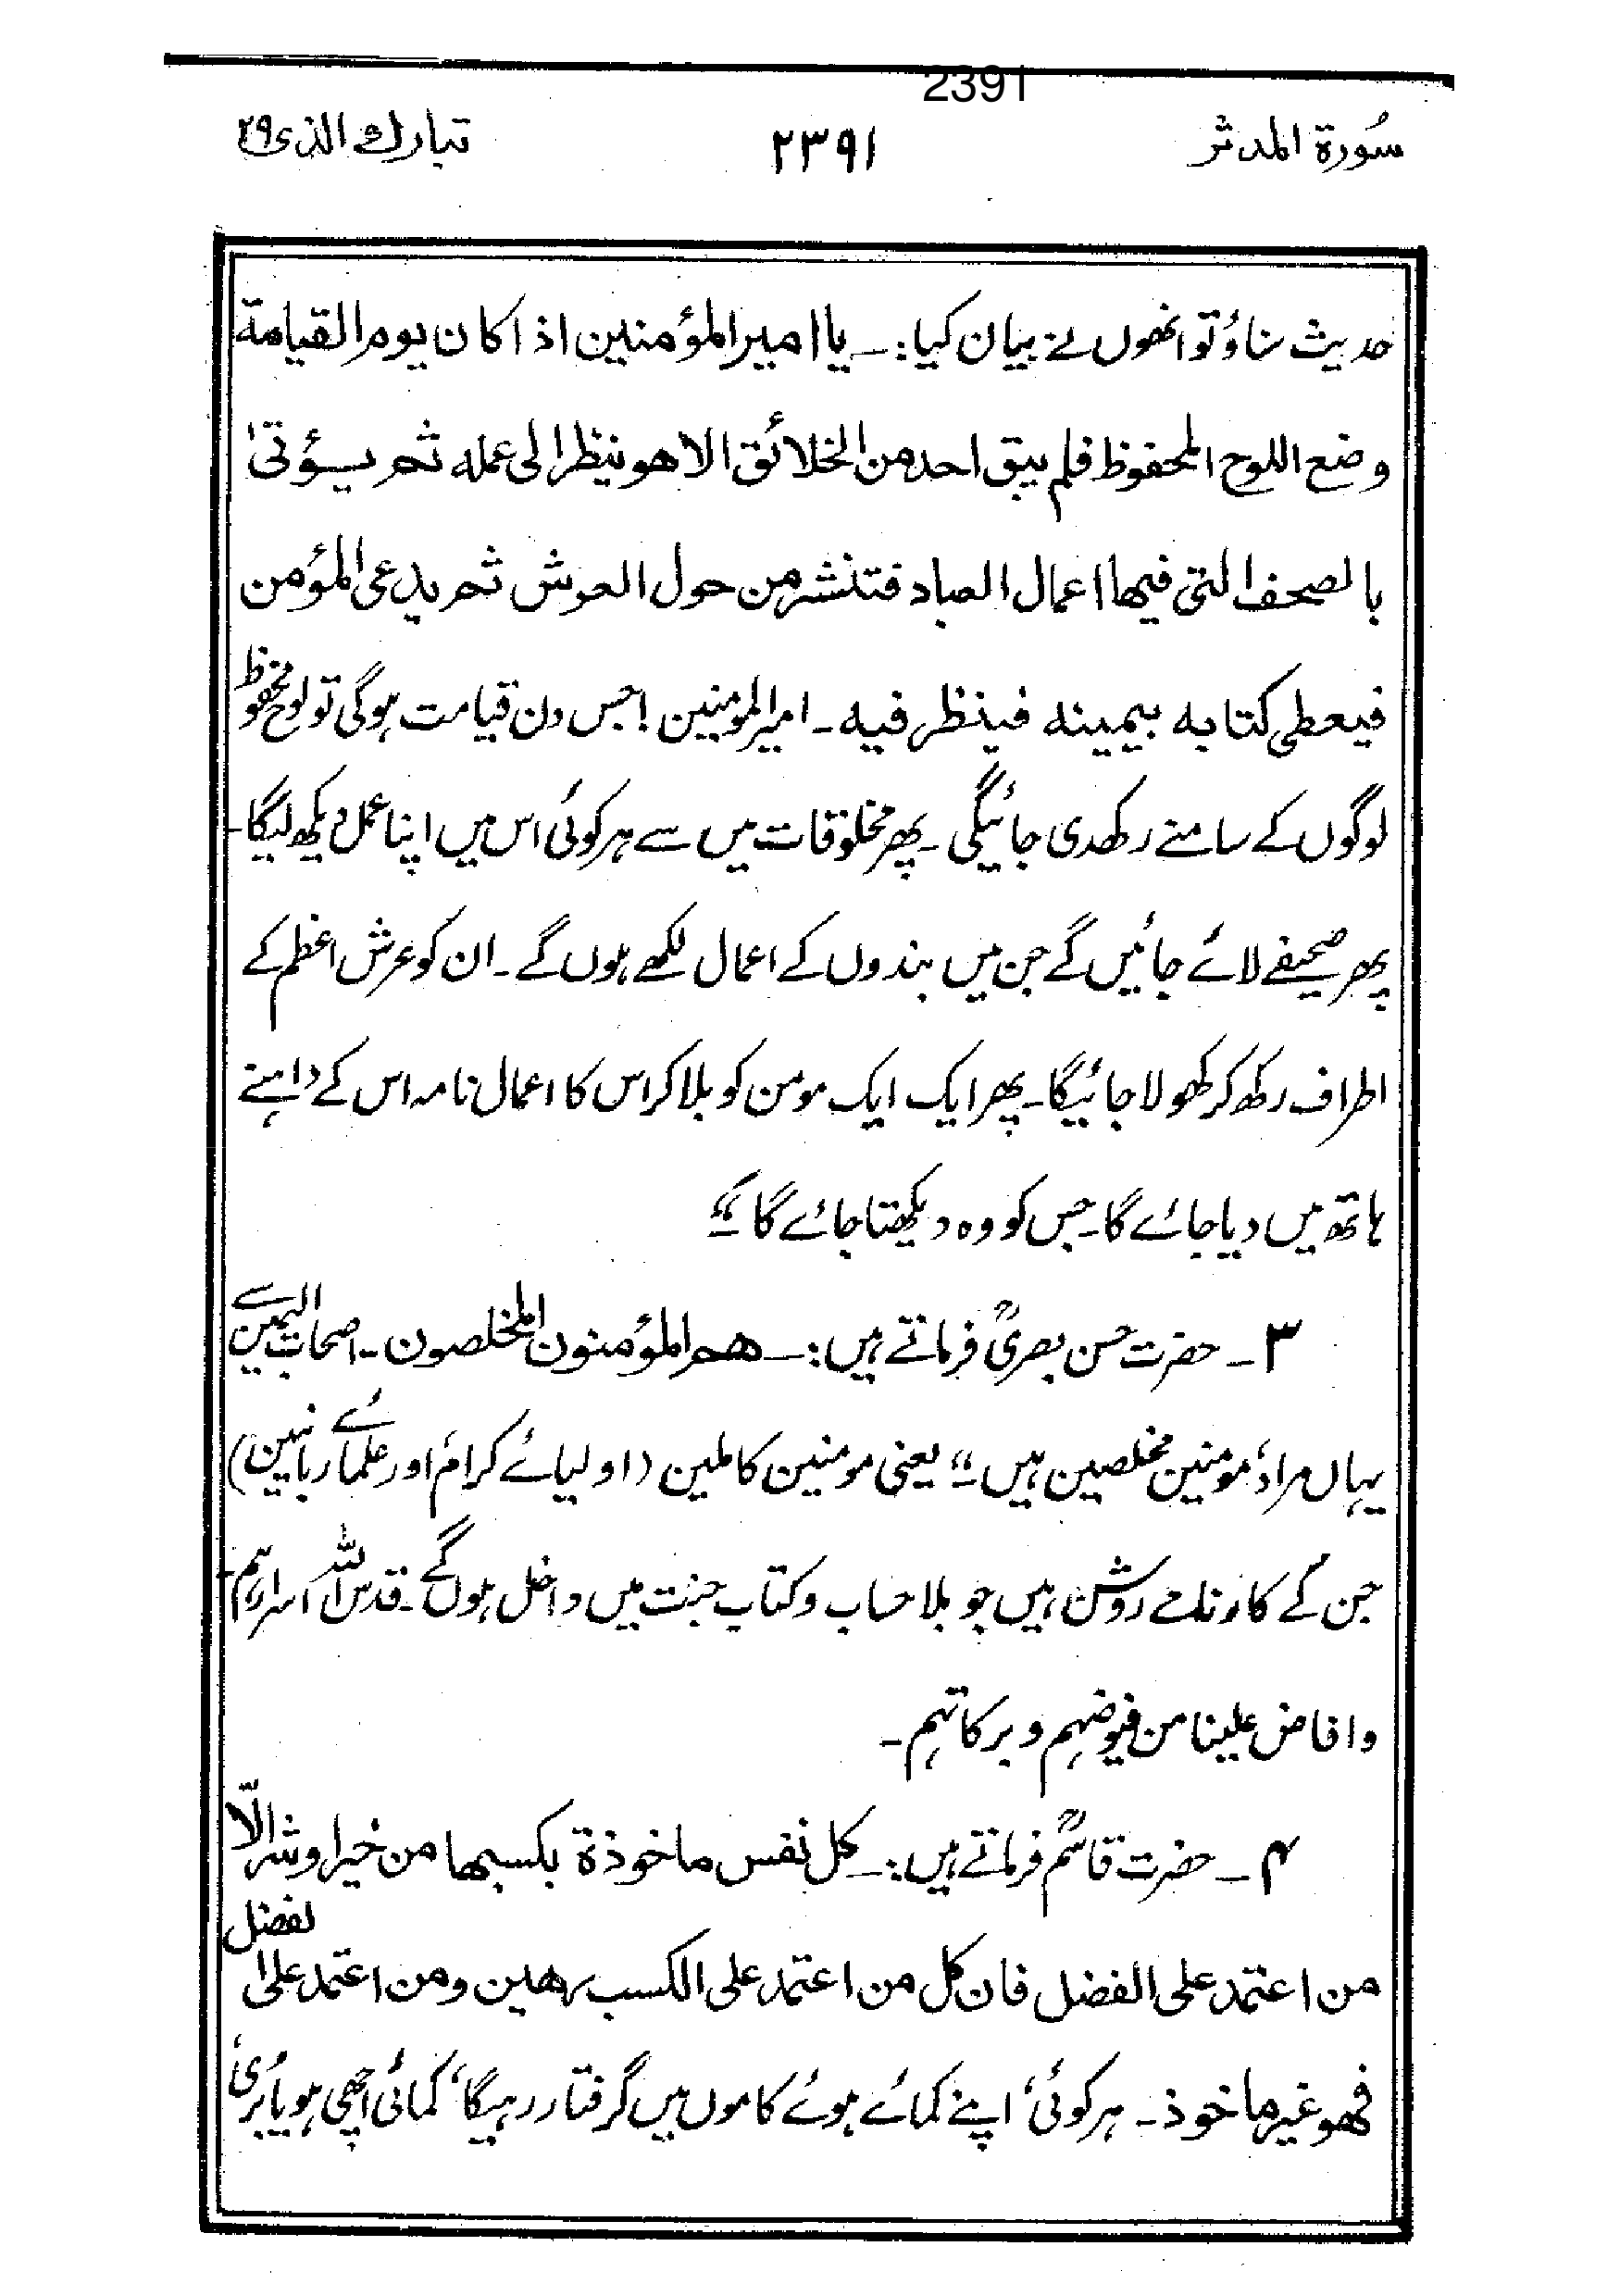 2391
سُورة المدثر ۲۳۹۱ تبارك الذی ۲۹
حدیث سناؤ تو انھوں نے بیان کیا:۔ یا امیر المؤمنین اذا کان یوم القیامة
وضع اللوح المحفوظ فلم یبق احد من الخلائق الا هو ینظر الی عمله ثم یـؤتیٰ
بالصحف التی فیها اعمال العباد فتنشر من حول العرش ثم یدعی المؤمن
فیعطی کتابه بیمینه فینظر فیه۔ امیر المومنین! جس دن قیامت ہوگی تو لوح محفوظ
لوگوں کے سامنے رکھدی جائیگی۔ پھر مخلوقات میں سے ہر کوئی اس میں اپنا عمل دیکھ لیگا۔
پھر صحیفے لائے جائیں گے جن میں بندوں کے اعمال لکھے ہوں گے۔ ان کو عرش اعظم کے
اطراف رکھ کر کھولا جائیگا۔ پھر ایک ایک مومن کو بلا کر اس کا اعمال نامہ اس کے داہنے
ہاتھ میں دیا جائے گا۔ جس کو وہ دیکھتا جائے گا۔“
۳۔ حضرت حسن بصریؒ فرماتے ہیں:۔ هم المؤمنون المخلصون۔ اصحاب الیمین سے
یہاں مراد، مومنین مخلصین ہیں۔“ یعنی مومنین کاملین (اولیائے کرام اور علمائے ربانیین)
جن کے کارنامے روشن ہیں جو بلا حساب و کتاب جنت میں داخل ہوں گے۔ قدس اللہ اسرارہم۔
وافاض علینا من فیوضہم و برکاتہم۔
۴۔ حضرت قاسمؒ فرماتے ہیں:۔ کل نفس ماخوذة بکسبها من خیر او شر الّا
من اعتمد علی الفضل فان کل من اعتمد علی الکسب رهین ومن اعتمد علی الفضل
فهو غیر ماخوذ۔ ہر کوئی، اپنے کمائے ہوئے کاموں میں گرفتار رہیگا، کمائی اچھی ہو یا بُری،